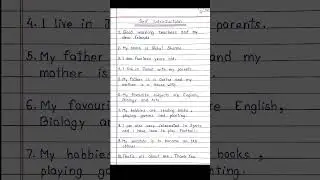 Self Introduction
1. Good morning teachers and my
dear friends
2. My name is Sharma.
3. I am fourteen years old.
4. I live in with my parents.
5. My father is a and my
mother is a house wife.
6. My favourite subjects are English,
Biology and Arts.
7. My hobbies are reading books,
playing games and painting.
8. I am also very interested in sports
and I love to play football.
9. My ambition is to become an
officer.
10. That's all about me, Thank You.
4. I live in J
5. My father
mother is
6. My favour
Biology an
7. My hobbies
playing ga
parents.
and my
English,
books,